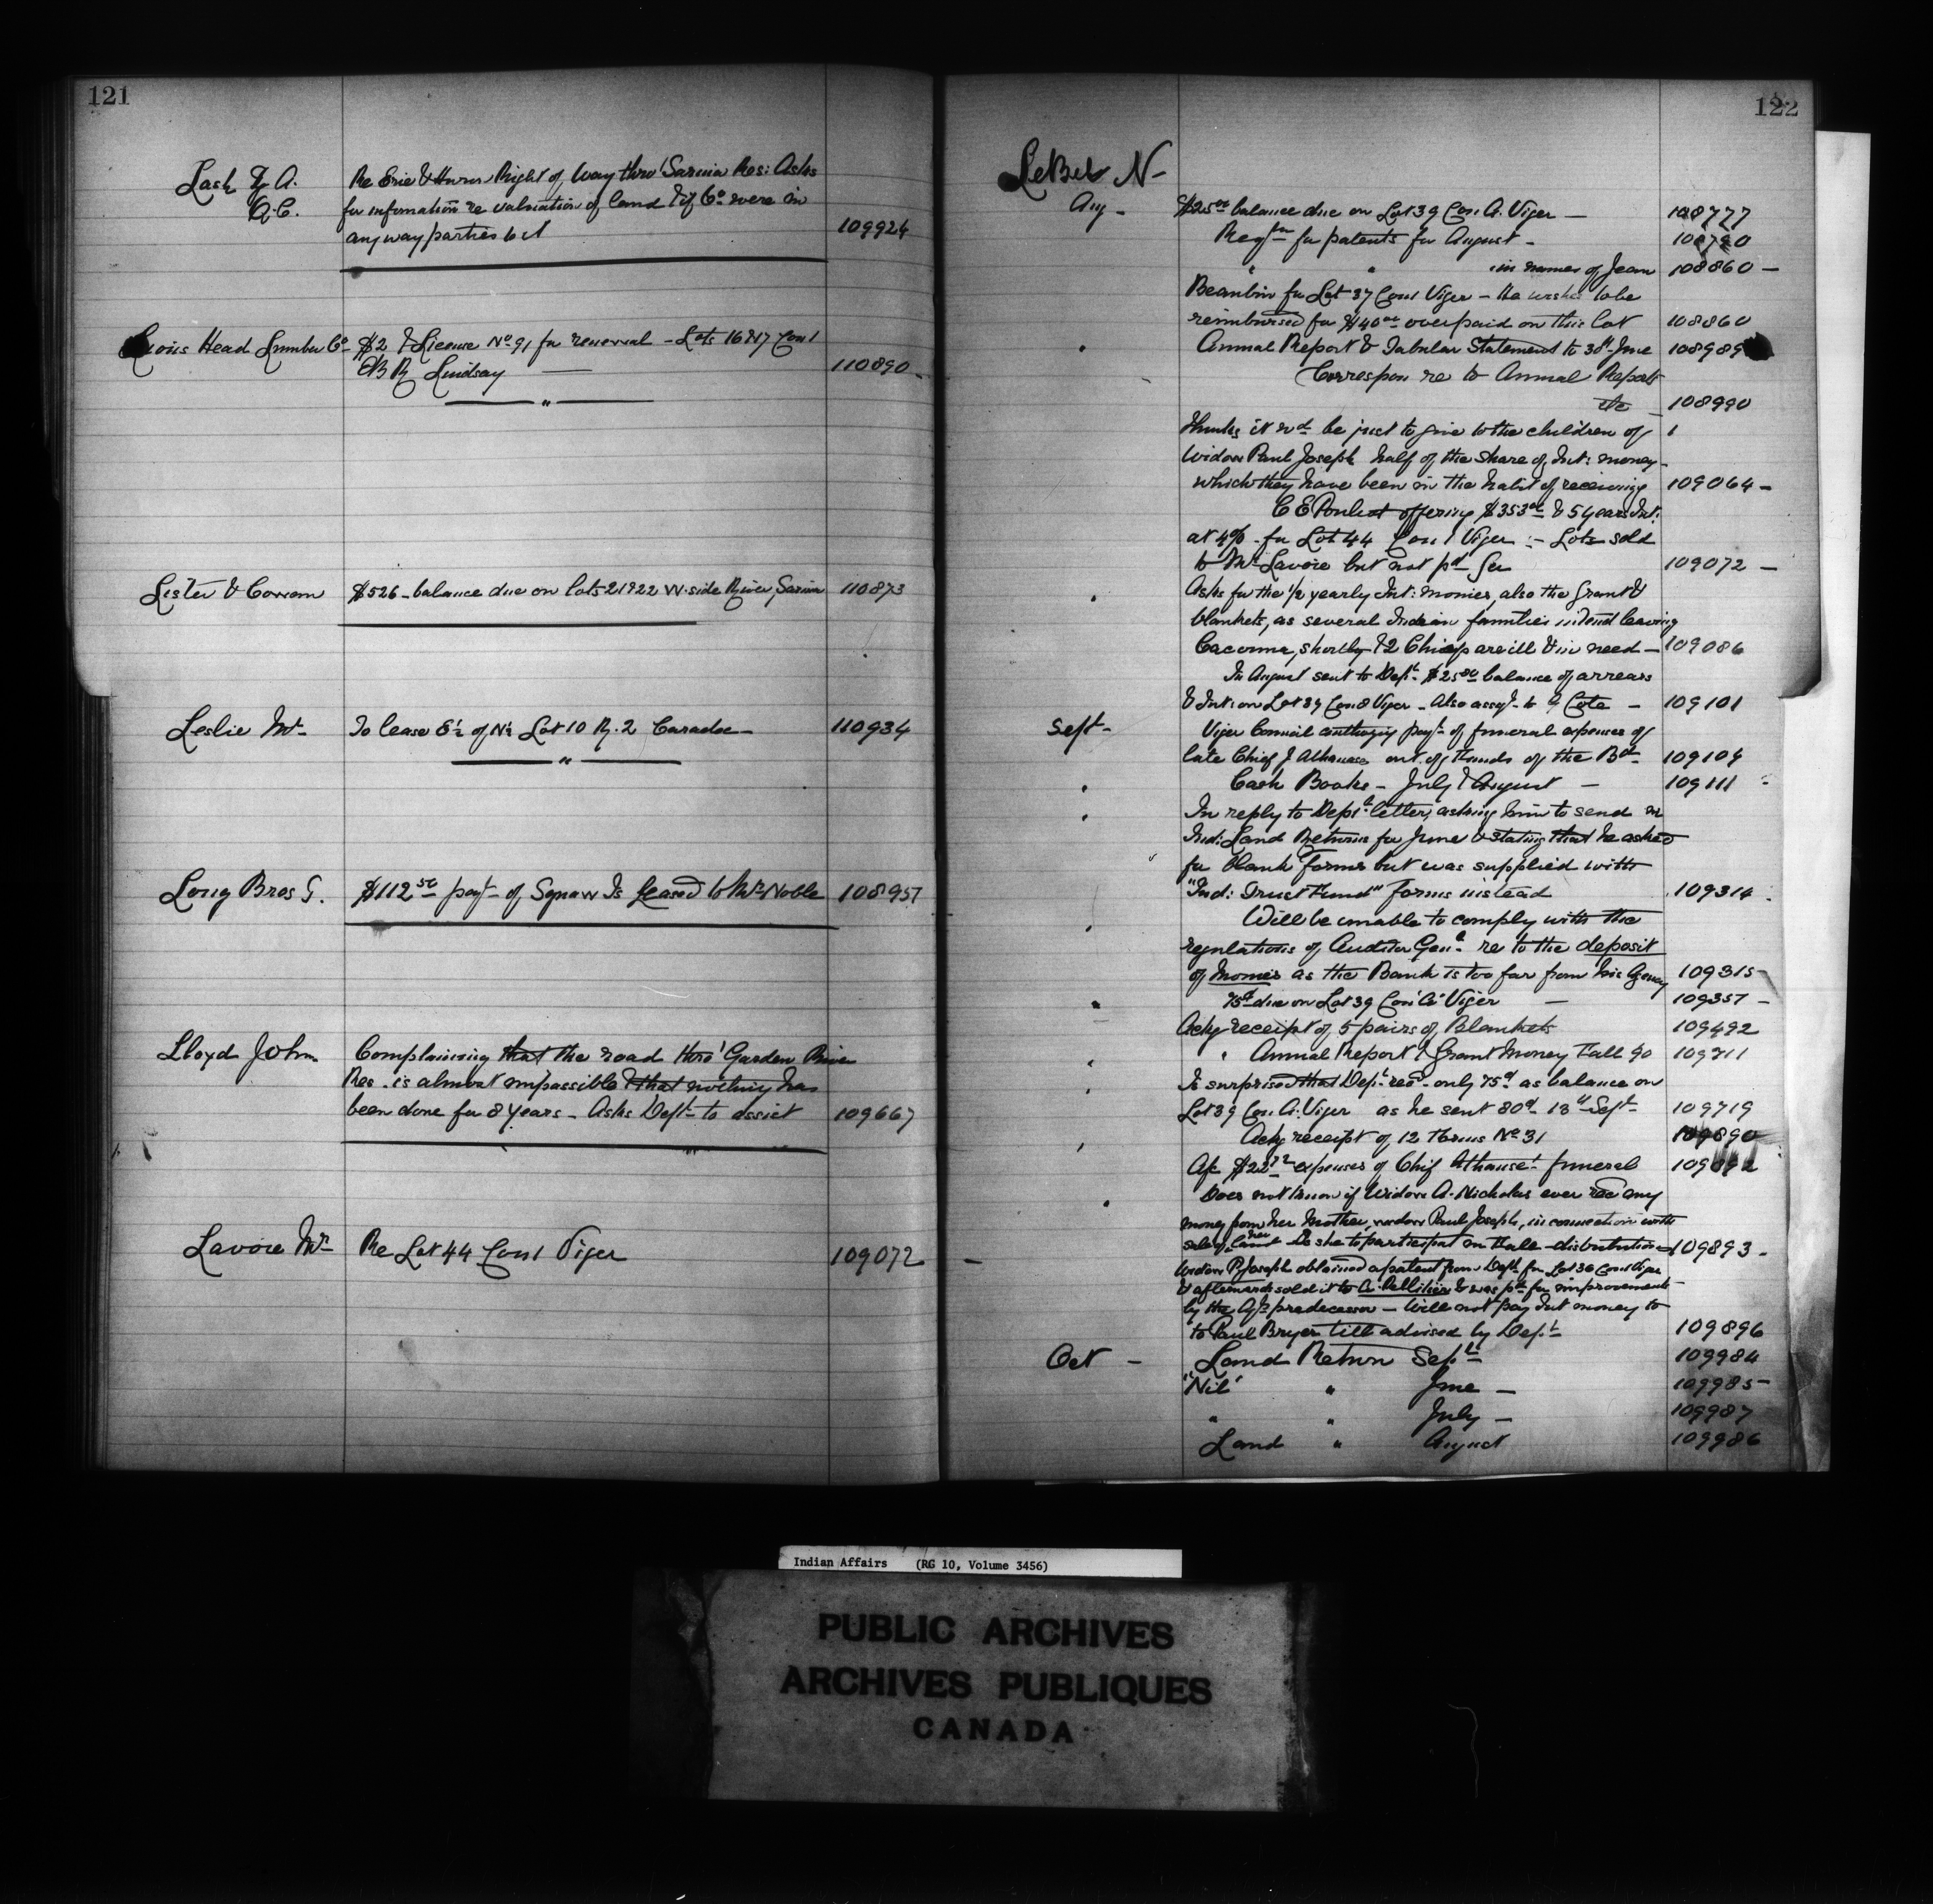 121
Lash Z. A. Re Erie & Huron Right of Way thro' Sarnia Res: Asks
Q.C. for information re valuation of land & if Co were in
any way parties to it 109924
Lyons Head Lumber Co $2 & License No 91 for renewal - Lots 16 & 17 Con 1
E B R Lindsay 110890
"
Lister & Cowan $526 - balance due on lots 21 & 22 W. side River, Sarnia 110873
Leslie Mr To lease E½ of N½ Lot 10 R. 2 Caradoc 110934
"
Long Bros G. $112 50 payt of Squaw Is leased to Mrs Noble 108957
Lloyd John Complaining that the road thro' Garden River
Res. is almost impassible & that nothing has
been done for 8 years - Asks Dept to assist 109667
Lavoie Mr Re Lot 44 Con 1 Viger 109072
122
LeBel N
Aug - $25 00 balance due on Lot 39 Con. A. Viger - 108777
Regn for patents for August - 108790
" " in names of Jean 108860 -
Beaulieu for Lot 37 Con 1 Viger - He wishes to be
reimbursed for $40 00 overpaid on this lot 108860
" Annual Report & Tabular Statement to 30th June 108989
Correspon re to Annual Reports
etc 108990
Thinks it wd be just to give to the children of
Widow Paul Joseph half of the share of Int: money
which they have been in the habit of receiving 109064 -
C E Pouliot offering $353 00 & 5 years Int:
at 4% - for Lot 44 Con 1 Viger :- Lots sold
to Mr Lavoie but not pd for 109072 -
" Asks for the ½ yearly Int: monies, also the Grant &
blankets, as several Indian families intend leaving
Cacouna, shortly & 2 Chiefs are ill & in need - 109086
In August sent to Dept $25 00 balance of arrears
& Int: on Lot 39 Con A Viger - Also assgt to Cote - 109101
Sept - Viger Council authorizing payt of funeral expenses of
late Chief J Athanase out of Funds of the Bd 109109
" Cash Books - July & August - 109111
" In reply to Dept letter, asking him to send in
Ind: Land Returns for June & stating that he asked
for blank forms but was supplied with
"Ind: Trust Fund" forms instead 109314
" Will be unable to comply with the
regulations of Auditor Genl re to the deposit
of monies as the Bank is too far from his Agency 109315
" 75c due on Lot 39 Con 'A' Viger - 109357 -
Ackg receipt of 5 pairs of Blankets 109492
" " Annual Report & Grant Money Fall 90 109711
" Is surprised that Dept recd only 75c as balance on
Lot 39 Con. A. Viger as he sent 80c 13th Sept 109719
Ackg receipt of 12 forms No 31 109890
" A/c $22 expenses of Chief Athanase' funeral 109892
" Does not know if Widow A. Nicholas ever recd any
money from her Mother, widow Paul Joseph, in connection with
sale of her land - Is she to participat in Fall distributions 109893 -
Widow P. Joseph obtained a patent from Dept for Lot 36 Con 1 Viger
& afterwards sold it to A. Pellitier & was pd for improvements
by the Agts predecessor - Will not pay Int money to
to Paul Bryer till advised by Dept 109896
Oct - Land Return Sept 109984
"Nil" " June - 109985 -
" " July - 109987
Land " August 109986
Indian Affairs (RG 10, Volume 3456)
PUBLIC ARCHIVES
ARCHIVES PUBLIQUES
CANADA